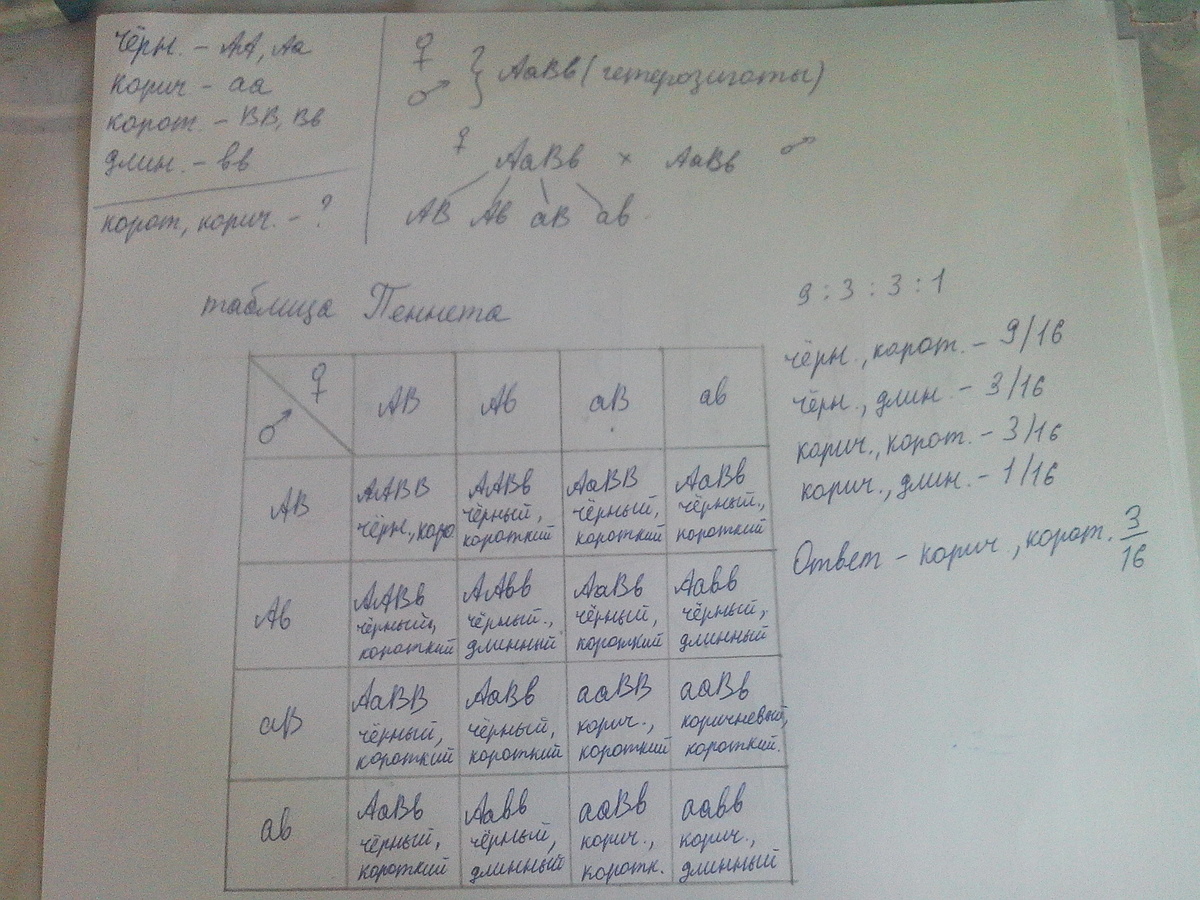 чёрн. - АА, Аа
корич - аа
корот. - ВВ, Вв
длин. - вв
корот, корич. - ?
♀
♂ } АаВв (гетерозиготы)
♀ АаВв × АаВв ♂
АВ Ав аВ ав.
таблица Пеннета
♀ ♂ АВ Ав аВ ав
АВ
ААВВ
чёрн., коро
ААВв
чёрный,
короткий
АаВВ
чёрный,
короткий
АаВв
чёрный.,
короткий
Ав
ААВв
чёрный,
короткий
ААвв
чёрный.,
длинный
АаВв
чёрный,
короткий
Аавв
чёрный,
длинный
аВ
АаВВ
чёрный,
короткий
АаВв
чёрный,
короткий
ааВВ
корич.,
короткий
ааВв
коричневый,
короткий.
ав
АаВв
чёрный,
короткий
Аавв
чёрный,
длинный
ааВв
корич.,
коротк.
аавв
корич.,
длинный
9 : 3 : 3 : 1
чёрн., корот. - 9/16
чёрн., длин. - 3/16
корич., корот. - 3/16
корич., длин. - 1/16
Ответ - корич, корот. 3/16